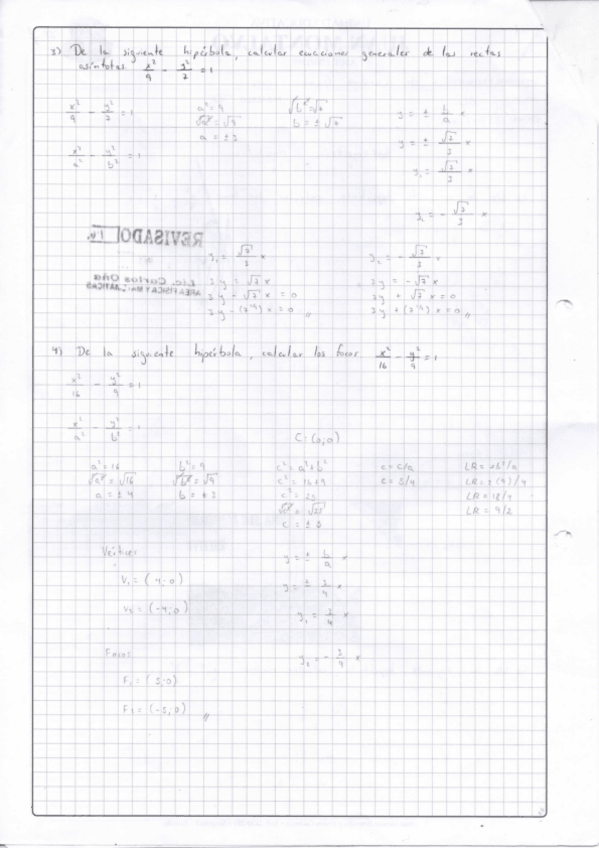 3) De la siguiente hipérbola, calcular ecuaciones generales de las rectas
asíntotas x²/9 - y²/7 = 1
x²/9 - y²/7 = 1
x²/a² - y²/b² = 1
a² = 9
√a² = √9
a = ± 3
√b² = √7
b = ± √7
y = ± b/a x
y = ± √7/3 x
y₁ = √7/3 x
y₂ = - √7/3 x
REVISADO
Lic. Carlos Oña
AREA FISICA Y MATEMATICAS
y₁ = √7/3 x
3y = √7 x
3y - √7 x = 0
3y - (7^½) x = 0 //
y₂ = - √7/3 x
3y = - √7 x
3y + √7 x = 0
3y + (7^½) x = 0 //
4) De la siguiente hipérbola, calcular los focos x²/16 - y²/9 = 1
x²/16 - y²/9 = 1
x²/a² - y²/b² = 1
C: (0,0)
a² = 16
√a² = √16
a = ± 4
b² = 9
√b² = √9
b = ± 3
c² = a² + b²
c² = 16 + 9
c² = 25
√c² = √25
c = ± 5
e = c/a
e = 5/4
LR = 2b²/a
LR = 2 (9) / 4
LR = 18/4
LR = 9/2
Vértices
V₁ = ( 4; 0 )
V₂ = (-4; 0 )
y = ± b/a x
y = ± 3/4 x
y₁ = 3/4 x
y₂ = - 3/4 x
Focos
F₁ = ( 5; 0 )
F₂ = (-5; 0 ) //